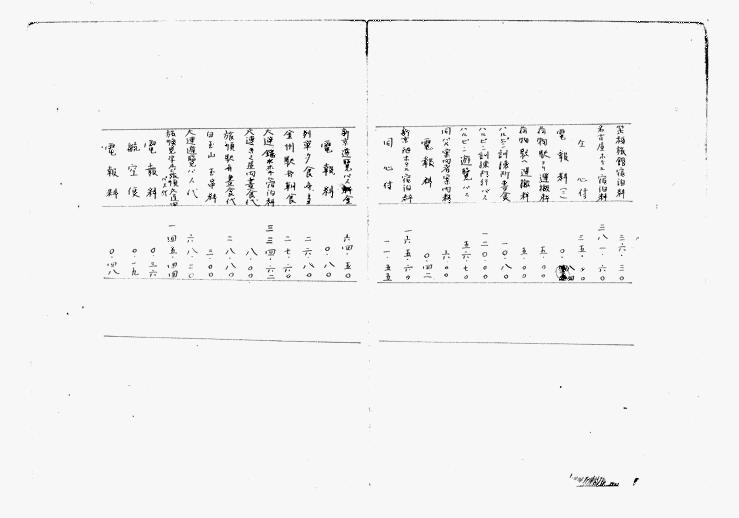 芝栢旅館宿泊料 三六・三〇
名古屋ホテル宿泊料 三八一・六〇
仝 心付 三五・〇〇
電報料(二)
荷物駅ヨリ運搬料 五・〇〇
荷物駅ヘ運搬料 五・〇〇
ハルビン訓練所昼食 一〇・八〇
ハルビン訓練所行バス 一二〇・〇〇
ハルビン遊覧バス 五六・七〇
同バス案内者案内料 六・〇〇
電報料 〇・四二
新京 ホテル宿泊料 一六五・六〇
同 心付 一一・五五
新京遊覧バス料金 六四・五〇
電報料 〇・八〇
列車夕食弁当 二六・八〇
金州駅弁朝食 二七・六〇
大連 ホテル宿泊料 三三四・六二
大連 昼食代
旅順駅弁昼食代 二八・八〇
白玉山 玉串料 三・〇〇
大連遊覧バス代 六八・二〇
旅順見学 バス代 一四五・四四
電報料 〇・三六
航空便 〇・一九
電報料 〇・四八